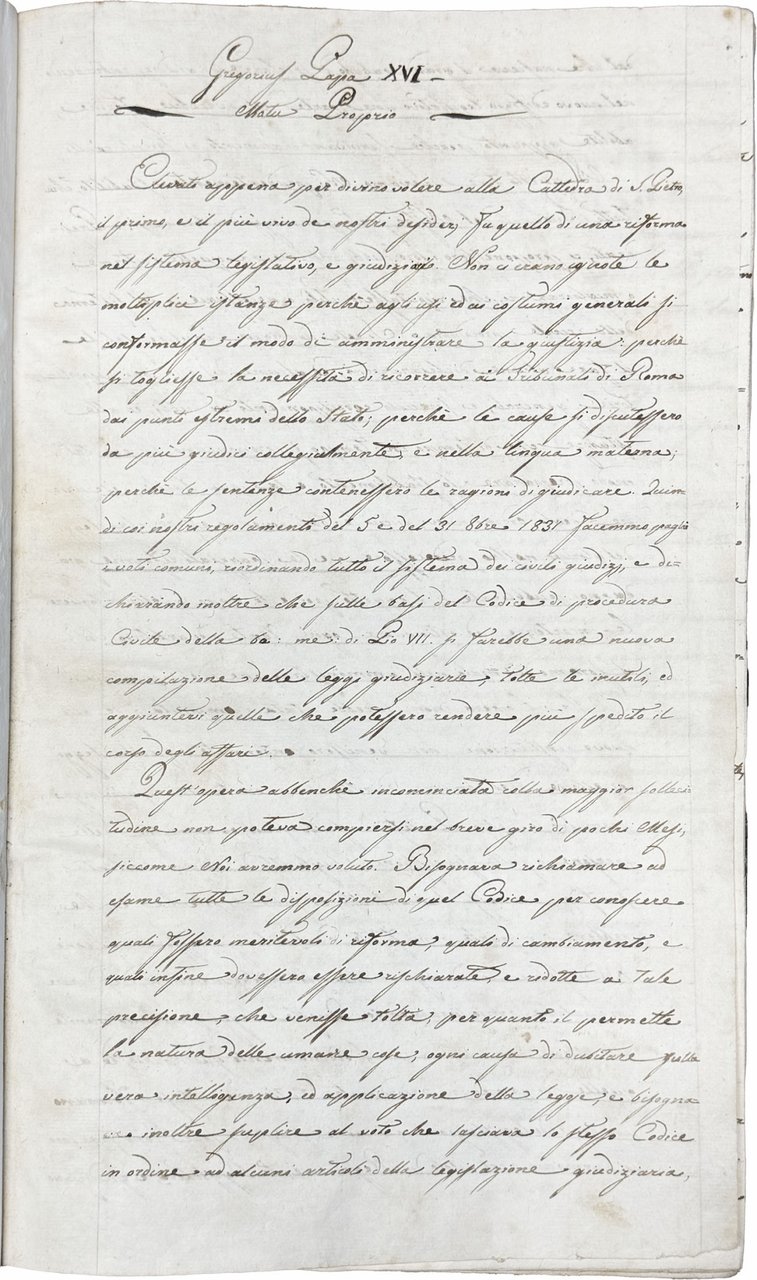 Gregorius Papa XVI -
Motu Proprio
Elevati appena per divino volere alla Cattedra di S. Pietro,
il primo, e il più vivo de nostri desiderj fu quello di una riforma
nel sistema legislativo, e giudiziario. Non ci erano ignote le
moltiplici istanze perchè agli usi ed ai costumi generali si
conformasse il modo di amministrare la giustizia: perchè
si togliesse la necessità di ricorrere ai Tribunali di Roma
dai punti estremi dello Stato; perchè le cause si discutessero
da più giudici collegialmente, e nella lingua materna;
perchè le sentenze contenessero le ragioni di giudicare. Quin-
di coi nostri regolamenti del 5 e del 31 8bre 1831 facemmo paghi
i voti comuni, riordinando tutto il sistema dei civili giudizj, e di-
chiarando inoltre che sulle basi del Codice di procedura
Civile della ba: me: di Pio VII. si farebbe una nuova
compilazione delle leggi giudiziarie, tolte le inutili, ed
aggiuntevi quelle che potessero rendere più spedito il
corso degli affari.
Quest'opera abbenchè incominciata colla maggior solleci-
tudine non poteva compiersi nel breve giro di pochi Mesi,
siccome Noi avremmo voluto. Bisognava richiamare ad
esame tutte le disposizioni di quel Codice per conoscere
quali fossero meritevoli di riforma, quali di cambiamento, e
quali infine dovessero essere rischiarate, e ridotte a tale
precisione, che venisse tolta, per quanto il permette
la natura delle umane cose, ogni causa di dubitare sulla
vera intelligenza, ed applicazione della legge, e bisogna-
va inoltre suplire al voto che lasciava lo stesso Codice
in ordine ad alcuni articoli della legislazione giudiziaria,